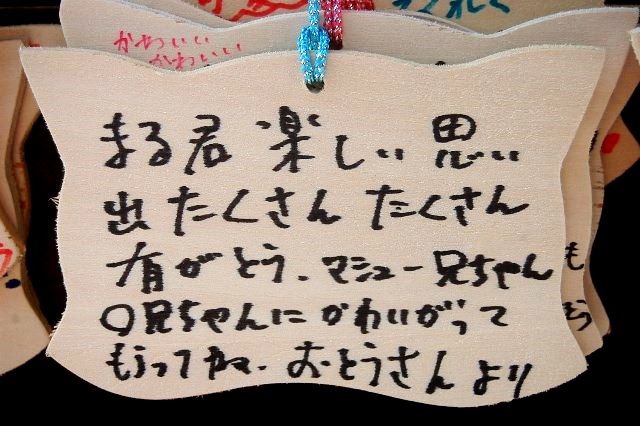 かわいい
かわいい
まる君 楽しい 思い
出 たくさん たくさん
有がとう、マシュー兄ちゃん
〇兄ちゃんにかわいがって
もらってね、おとうさんより